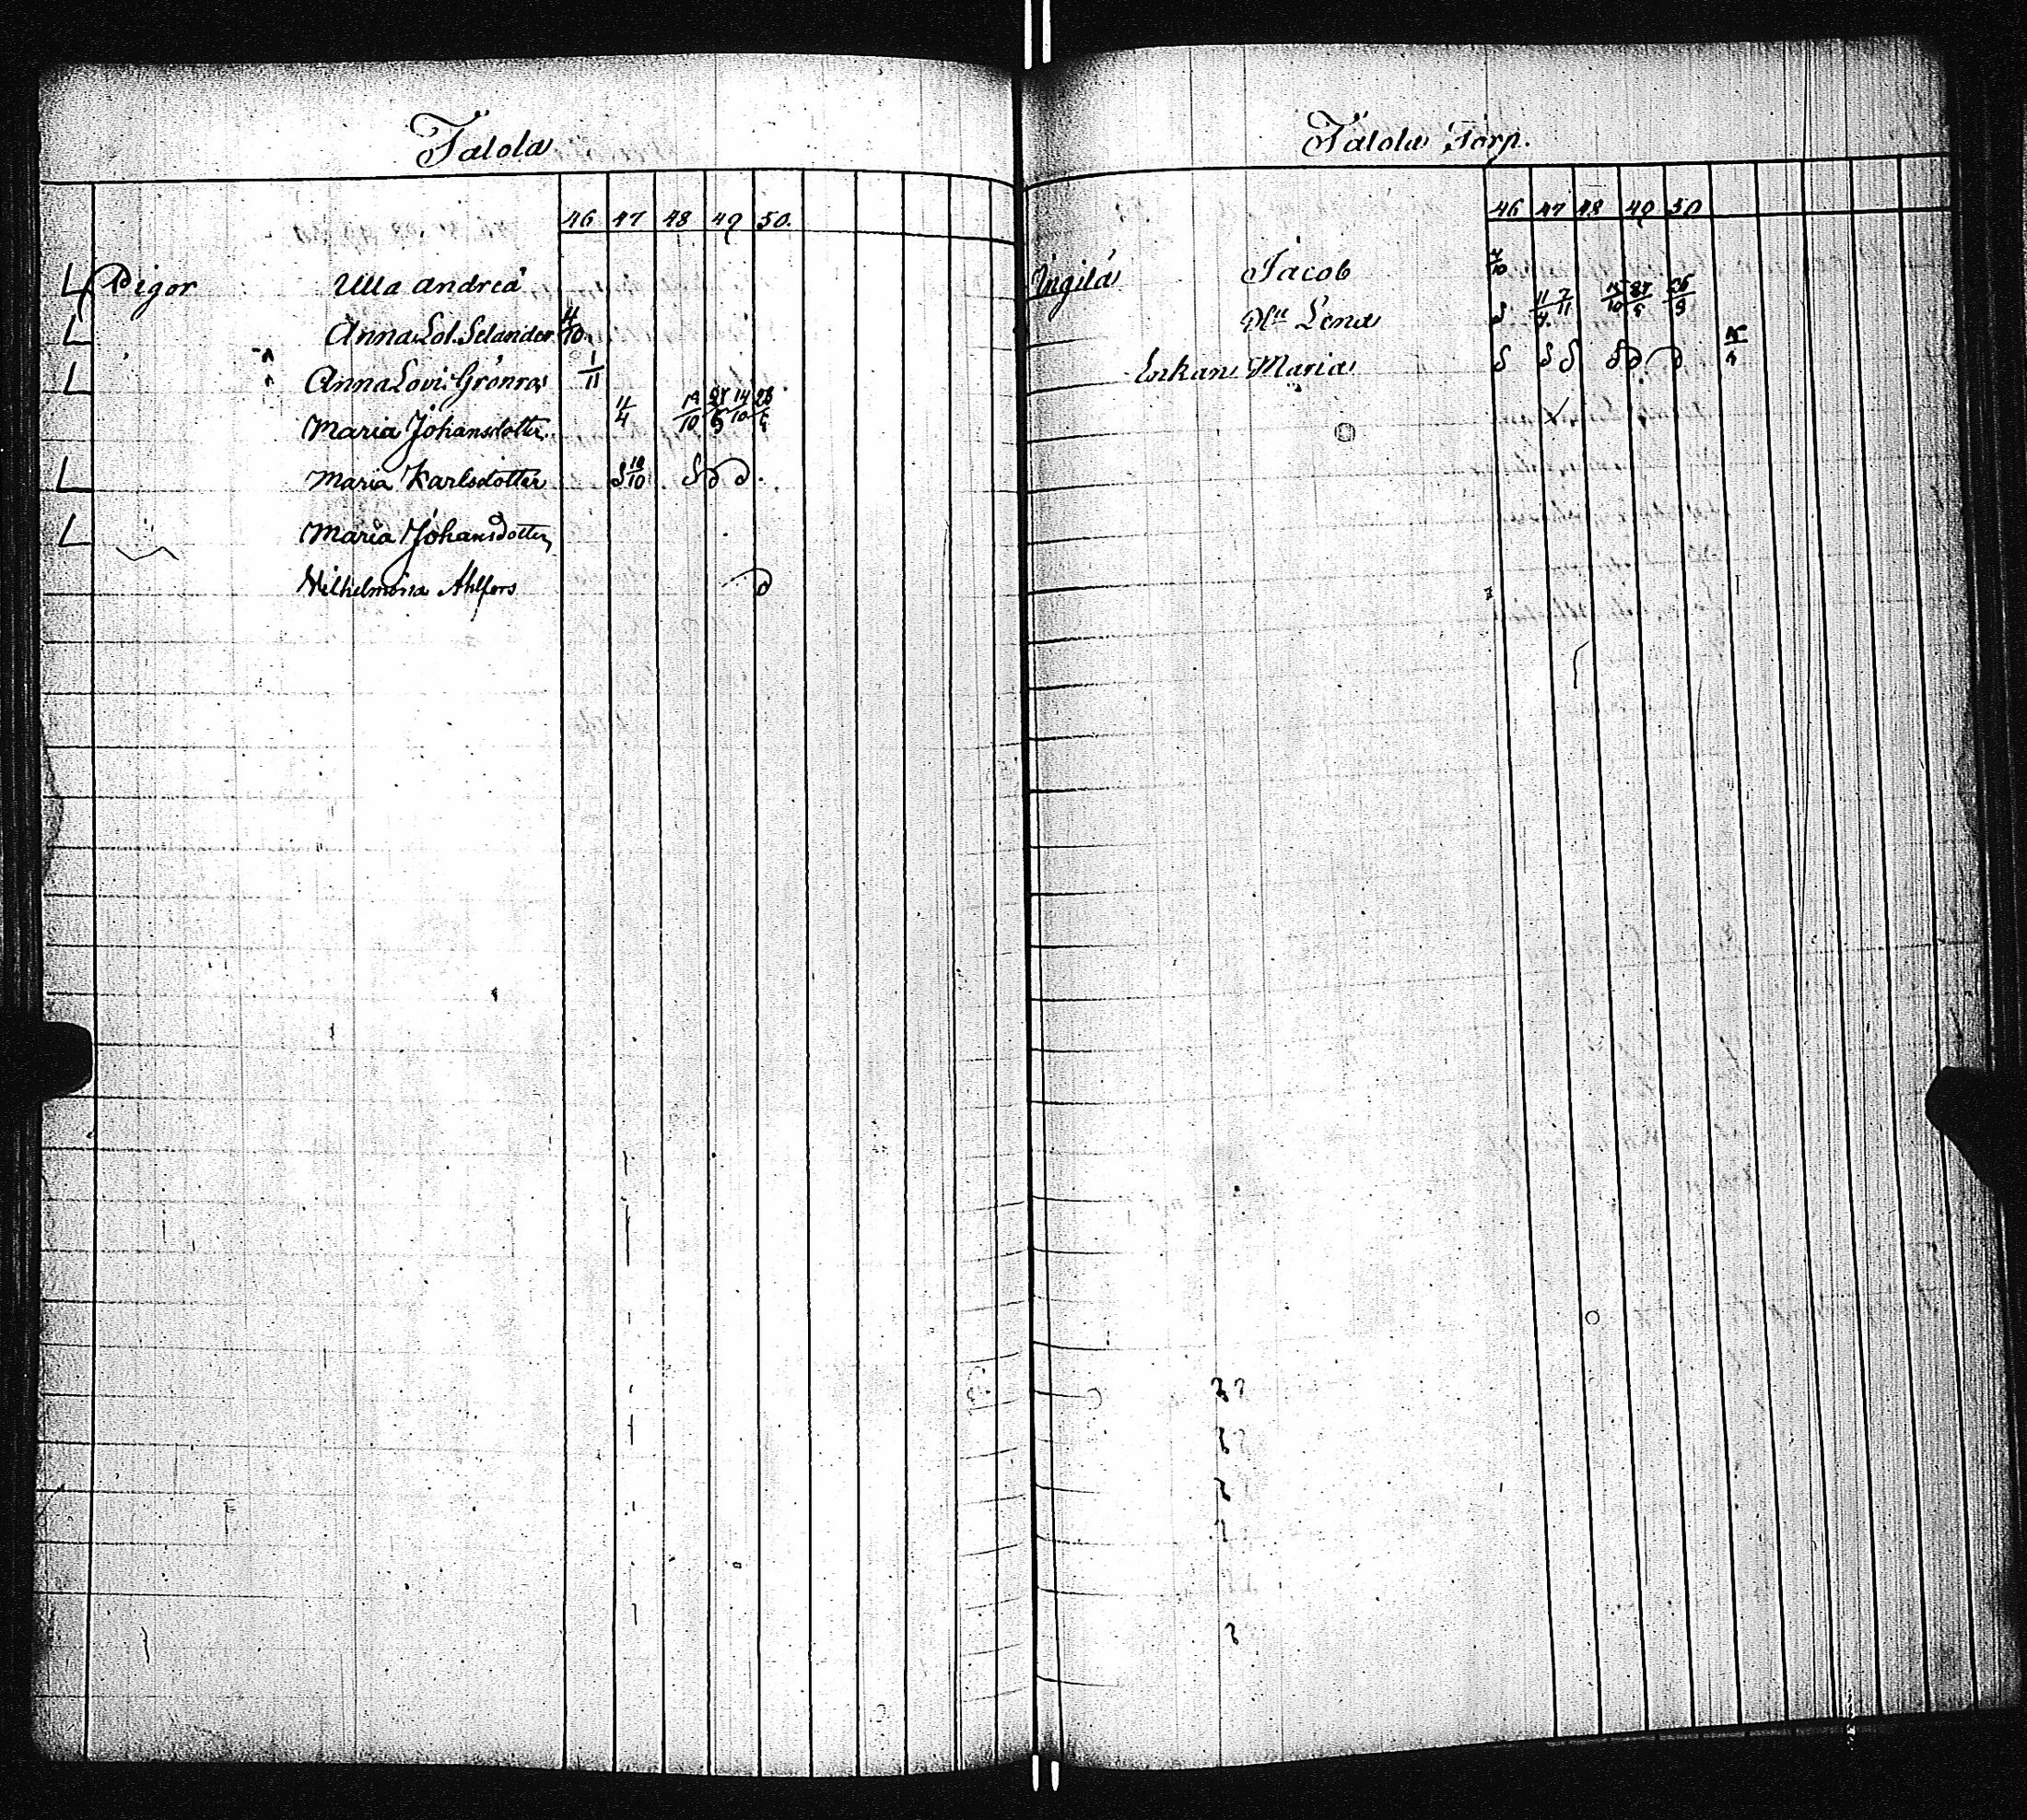 Jälola
46 47 48 49 50.
L Pigor Ulla Andreä
L Anna Lol. Selander 4/10
L Anna Lovis Grönros 1/11
Maria Johansdotter 11/4 27/5 14/10
L Maria Karlsdotter 10/10
L Maria Johansdotter
Vilhelmina Ahlfors
Jälola Torp.
46 47 48 49 50
Ingilä Jacob 4/10
Hu Lena 11/4 7/11
Enkan Maria